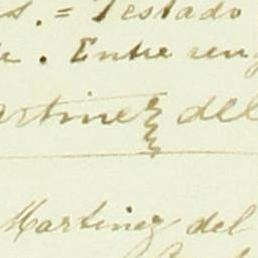 s. = Testado
. Entre reng
artinez del
Martinez del